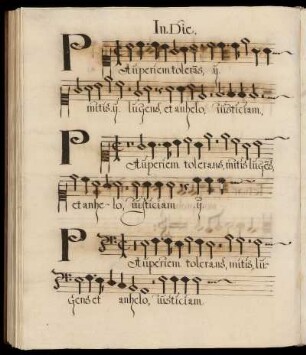 In. Die.
Pauperiem tolerans, ij
mitis. ij. lugens, et anhelo, iusticiam,
Pauperiem tolerans, mitis, lugens,
et anhe-lo, iusticiam ij
Pauperiem tolerans, mitis, lu-
gens et anhelo, iusticiam.